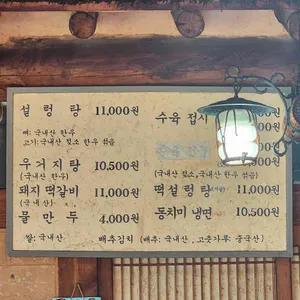 설렁탕 11,000원
뼈: 국내산 한우
고기: 국내산 젖소 한우 섞음
우거지탕 10,500원
(국내산 한우)
돼지 떡갈비 11,000원
(국내산)
물만두 4,000원
쌀: 국내산
수육 접시
(국내산 젖소, 국내산 한우 섞음)
떡설렁탕 11,000원
동치미 냉면 10,500원
배추김치 (배추: 국내산, 고춧가루: 중국산)